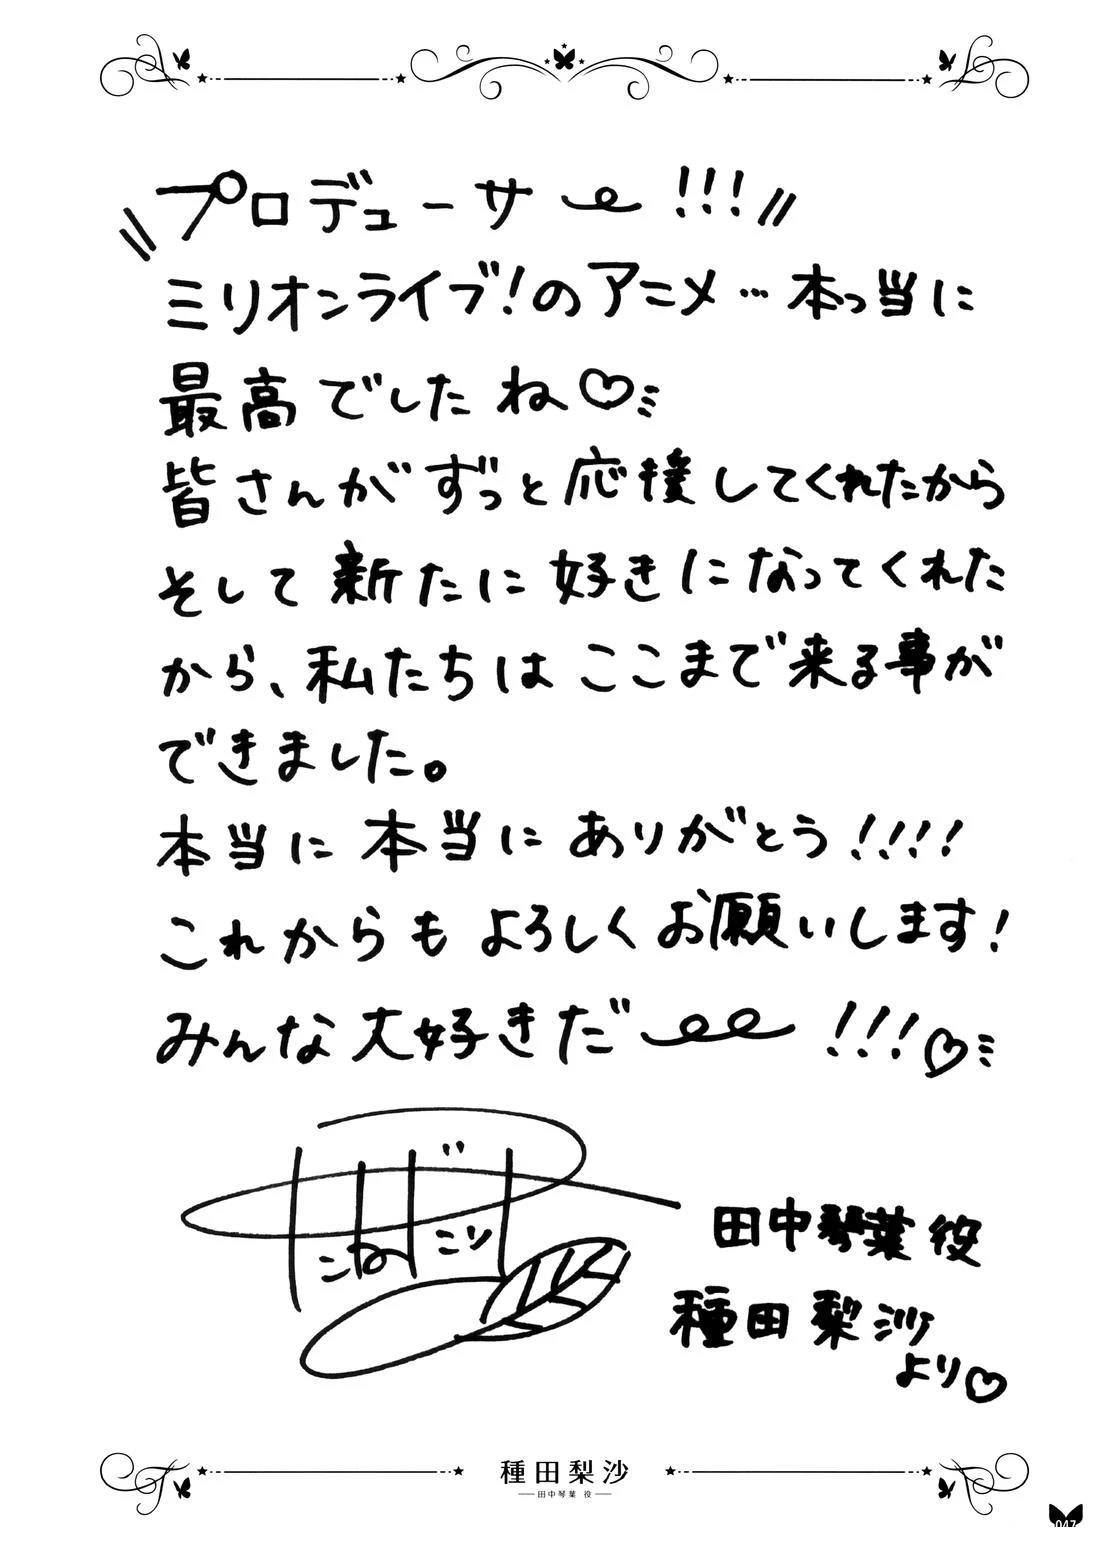 \\プロデューサ〜!!!//
ミリオンライブ!のアニメ…本っ当に
最高でしたね♡
皆さんがずっと応援してくれたから
そして新たに好きになってくれた
から、私たちはここまで来る事が
できました。
本当に本当にありがとう!!!!
これからもよろしくお願いします!
みんな大好きだ〜〜!!!♡
田中琴葉役
種田梨沙
より♡
種田梨沙
田中琴葉 役
047